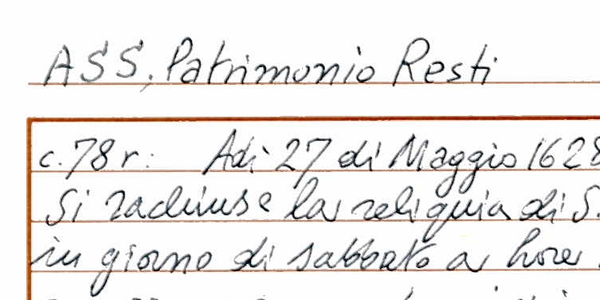 ASS, Patrimonio Resti
c. 78 r: Adì 27 di Maggio 1628
Si radiuse la reliquia di S.
in giorno di sabbato a hore